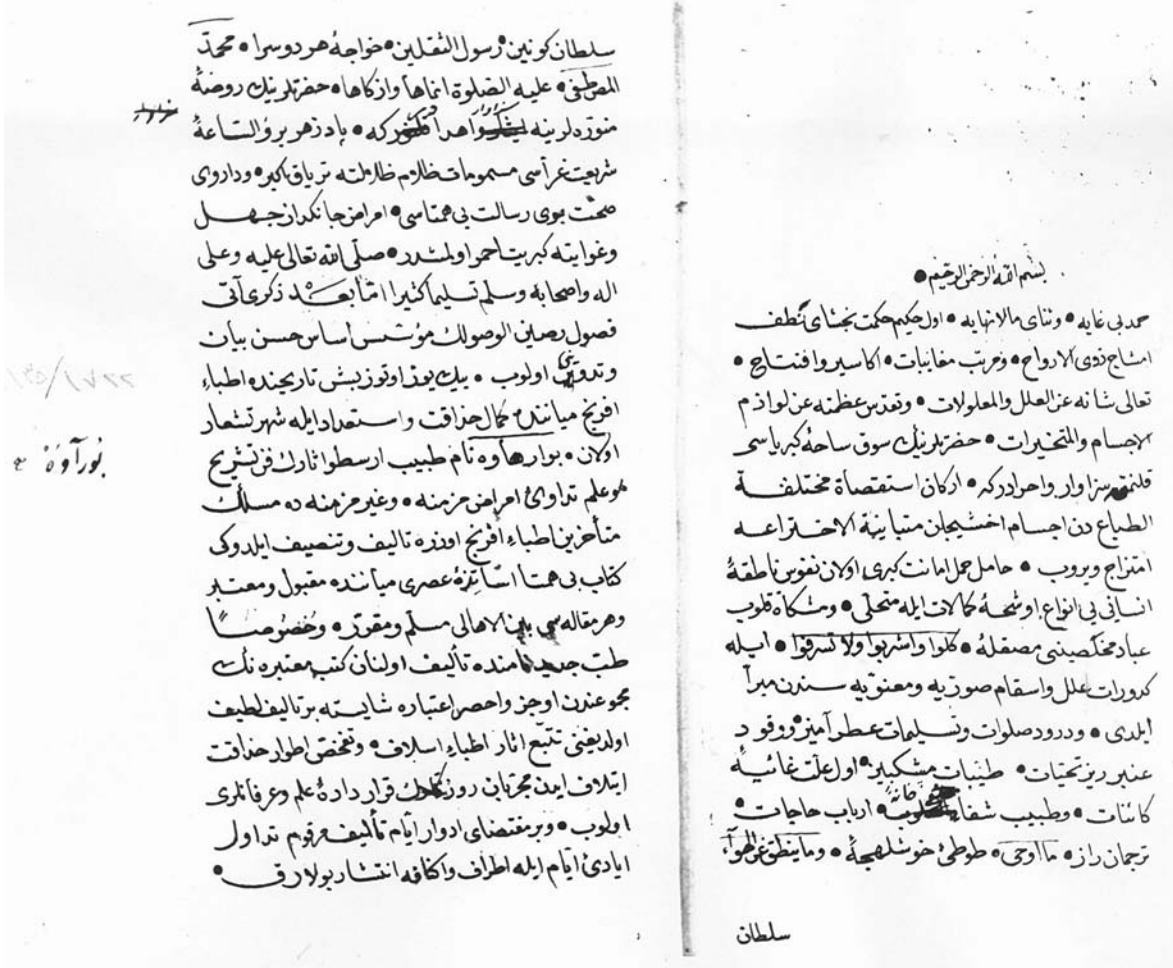 بسم الله الرحمن الرحيم
حمد بى غايه • وثناى مالانهايه • اول حكيم حكمت بخشاى نطف
امشاج ذوى الارواح • ومرتب مغانيات • اكاسير وافتتاح •
تعالى شانه عن العلل والمعلولات • وتقدس عظمته عن لوازم
الاجسام والمتحيزات • حضرتلرينك سوق ساحهٔ كبرياسى
قلنمق سزاوار واحرادركه • اركان استقصاة مختلفة
الطباع دن اجسام اخشيجان متباينة الاختراعه
امتزاج ويروب • حامل حمل امانت كبرى اولان نفوس ناطقهٔ
انسانى يى انواع اوشحهٔ كمالات ايله متحلى • ومشكاة قلوب
عباد مخلصينى مصقلهٔ • كلوا واشربوا ولا تسرفوا • ايله
كدورات علل واسقام صوريه ومعنويه سندن مبرا
ايلدى • ودرود صلوات وتسليمات عطر آميز • ووفود
عنبر ريز تحيات • طنبات مشكبيز • اول علت غائيهٔ
كائنات • وطبيب شفا خانهٔ • ارباب حاجات •
ترجمان راز • ما اوحى • طوطئ خوش لهجهٔ • وما ينطق عن الهوآء
سلطان
سلطان كونين • رسول الثقلين • خواجهٔ هر دوسرا • محمد
المصطفى • عليه الصلوة انماها وازكاها • حضرتلرينك روضهٔ
منوره لرينه اهدا كه • پادزهر برؤ الساعهٔ
شريعت غراسى مسمومات ظلام ظلالته ترياق اكبر • وداروى
صحت بوى رسالت بى همتاسى • امراض جانكداز جهل
وغوايته كبريت احمر اولمشدر • صلى الله تعالى عليه وعلى
اله واصحابه وسلم تسليما كثيرا اما بعد ذكرى آتى
فصول رصين الوصولك مؤسس اساس حسن بيان
وتدوينى اولوب • بيك يوز اوتوز بش تاريخنده اطباء
افرنج مياننده كمال حذاقت واستعداد ايله شهرتشعار
اولان • بوارهاوه نام طبيب ارسطو اثارك فن تشريح
وعلم تداوئ امراض مزمنه • وغير مزمنه ده مسلك
متأخرين اطباء افرنج اوزره تاليف وتنصيف ايلدوكى
كتاب بى همتا اساتزهٔ عصرى مياننده مقبول ومعتبر
وهر مقاله سى بين الاهالى مسلم ومقرر • وخصوصاً
طب جديد نامنده تأليف اولنان كتب معتبره نك
مجموعندن اوجز واحصر اعتباره شايسته بر تاليف لطيف
اولديغنى تتبع اثار اطباء اسلاف • وتفحص اطوار حذاقت
ايتلاف ايدن مجربان روزكارك قرار دادهٔ علم وعرفانلرى
اولوب • وبر مقتضاى ادوار ايام تأليف مرقوم تداول
ايادئ ايام ايله اطراف واكنافه انتشار بولارق •
١١٣٥/١٧٢٢
بورآوه